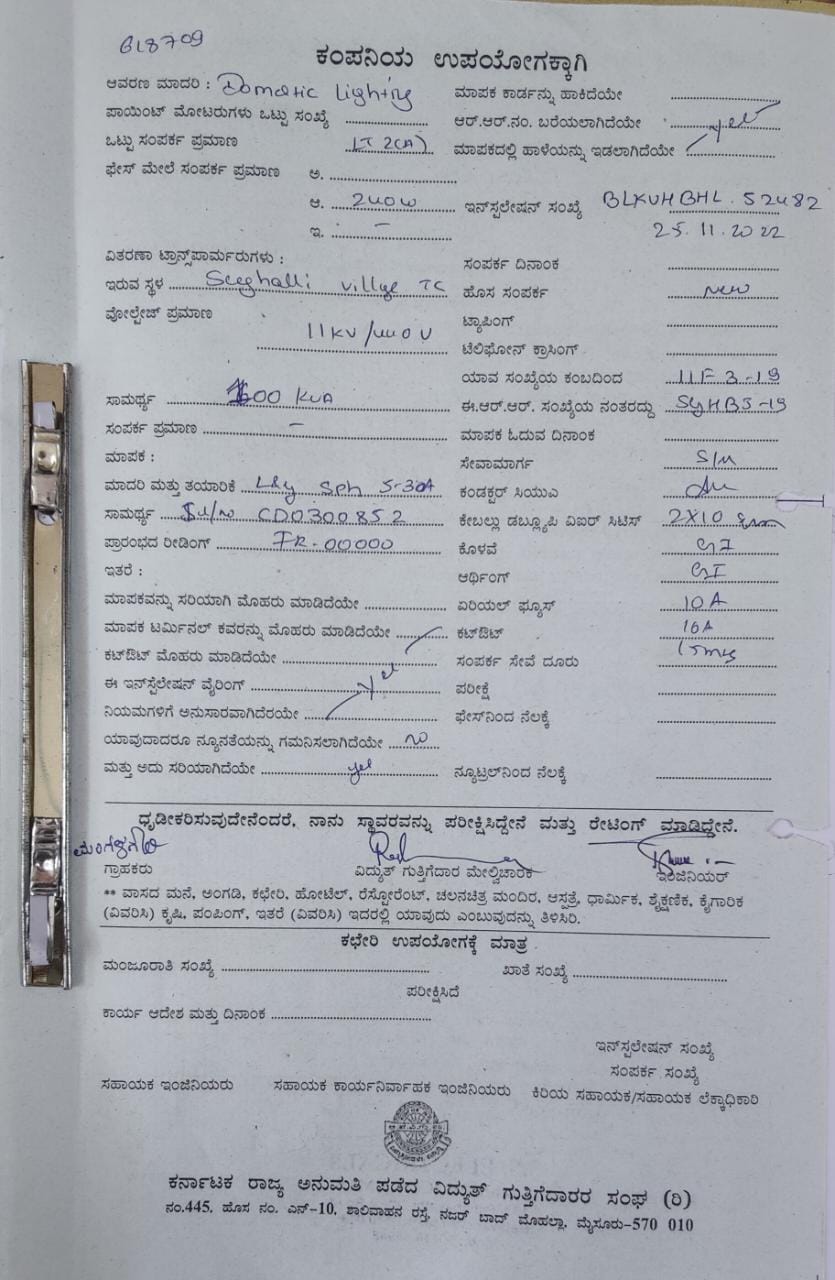 618709
ಕಂಪನಿಯ ಉಪಯೋಗಕ್ಕಾಗಿ
ಆವರಣ ಮಾದರಿ : Domatic Lighting ಮಾಪಕ ಕಾರ್ಡನ್ನು ಹಾಕಿದೆಯೇ
ಪಾಯಿಂಟ್ ಮೋಟರುಗಳು ಒಟ್ಟು ಸಂಖ್ಯೆ ಆರ್.ಆರ್.ನಂ. ಬರೆಯಲಾಗಿದೆಯೇ yes
ಒಟ್ಟು ಸಂಪರ್ಕ ಪ್ರಮಾಣ LT 2(A) ಮಾಪಕದಲ್ಲಿ ಹಾಳೆಯನ್ನು ಇಡಲಾಗಿದೆಯೇ
ಫೇಸ್ ಮೇಲೆ ಸಂಪರ್ಕ ಪ್ರಮಾಣ ಅ.
ಆ. 240W ಇನ್‌ಸ್ಪಲೇಷನ್ ಸಂಖ್ಯೆ BLKVHBHL.52482
ಇ. - 25.11.2022
ವಿತರಣಾ ಟ್ರಾನ್ಸ್‌ಪಾರ್ಮರುಗಳು : ಸಂಪರ್ಕ ದಿನಾಂಕ
ಇರುವ ಸ್ಥಳ village TC ಹೊಸ ಸಂಪರ್ಕ New
ವೋಲ್ಟೇಜ್ ಪ್ರಮಾಣ 11KV/440V ಟ್ಯಾಪಿಂಗ್
ಟೆಲಿಫೋನ್ ಕ್ರಾಸಿಂಗ್
ಯಾವ ಸಂಖ್ಯೆಯ ಕಂಬದಿಂದ 11F3-19
ಸಾಮರ್ಥ್ಯ 100 KVA ಈ.ಆರ್.ಆರ್. ಸಂಖ್ಯೆಯ ನಂತರದ್ದು SYHB5-19
ಸಂಪರ್ಕ ಪ್ರಮಾಣ - ಮಾಪಕ ಓದುವ ದಿನಾಂಕ
ಮಾಪಕ : ಸೇವಾಮಾರ್ಗ S/M
ಮಾದರಿ ಮತ್ತು ತಯಾರಿಕೆ L&y Sph 5-30A ಕಂಡಕ್ಟರ್ ಸಿಯುಎ
ಸಾಮರ್ಥ್ಯ CD0300852 ಕೇಬಲ್ಲು ಡಬ್ಲ್ಯೂಪಿ ವಿಐರ್ ಸಿಟಿಸ್ 2X10
ಪ್ರಾರಂಭದ ರೀಡಿಂಗ್ IR-00000 ಕೊಳವೆ GI
ಇತರೆ : ಆರ್ಥಿಂಗ್ GI
ಮಾಪಕವನ್ನು ಸರಿಯಾಗಿ ಮೊಹರು ಮಾಡಿದೆಯೇ ಏರಿಯಲ್ ಫ್ಯೂಸ್ 10A
ಮಾಪಕ ಟರ್ಮಿನಲ್ ಕವರನ್ನು ಮೊಹರು ಮಾಡಿದೆಯೇ ಕಟ್‌ಔಟ್ 16A
ಕಟ್‌ಔಟ್ ಮೊಹರು ಮಾಡಿದೆಯೇ ಸಂಪರ್ಕ ಸೇವೆ ದೂರು 15mts
ಈ ಇನ್‌ಸ್ಪೆಲೇಷನ್ ವೈರಿಂಗ್ yes ಪರೀಕ್ಷೆ
ನಿಯಮಗಳಿಗೆ ಅನುಸಾರವಾಗಿದೆರಯೇ ಫೇಸ್‌ನಿಂದ ನೆಲಕ್ಕೆ
ಯಾವುದಾದರೂ ನ್ಯೂನತೆಯನ್ನು ಗಮನಿಸಲಾಗಿದೆಯೇ no
ಮತ್ತು ಅದು ಸರಿಯಾಗಿದೆಯೇ yes ನ್ಯೂಟ್ರಲ್‌ನಿಂದ ನೆಲಕ್ಕೆ
ಧೃಡೀಕರಿಸುವುದೇನೆಂದರೆ, ನಾನು ಸ್ಥಾವರವನ್ನು ಪರೀಕ್ಷಿಸಿದ್ದೇನೆ ಮತ್ತು ರೇಟಿಂಗ್ ಮಾಡಿದ್ದೇನೆ.
ಗ್ರಾಹಕರು ವಿದ್ಯುತ್ ಗುತ್ತಿಗೆದಾರ ಮೇಲ್ವಿಚಾರಕ ಇಂಜಿನಿಯರ್
** ವಾಸದ ಮನೆ, ಅಂಗಡಿ, ಕಛೇರಿ, ಹೋಟೆಲ್, ರೆಸ್ಟೋರೆಂಟ್, ಚಲನಚಿತ್ರ ಮಂದಿರ, ಆಸ್ಪತ್ರೆ, ಧಾರ್ಮಿಕ, ಶೈಕ್ಷಣಿಕ, ಕೈಗಾರಿಕ
(ವಿವರಿಸಿ) ಕೃಷಿ, ಪಂಪಿಂಗ್, ಇತರೆ (ವಿವರಿಸಿ) ಇದರಲ್ಲಿ ಯಾವುದು ಎಂಬುವುದನ್ನು ತಿಳಿಸಿರಿ.
ಕಛೇರಿ ಉಪಯೋಗಕ್ಕೆ ಮಾತ್ರ
ಮಂಜೂರಾತಿ ಸಂಖ್ಯೆ ಖಾತೆ ಸಂಖ್ಯೆ
ಪರೀಕ್ಷಿಸಿದೆ
ಕಾರ್ಯ ಆದೇಶ ಮತ್ತು ದಿನಾಂಕ
ಇನ್‌ಸ್ಪಲೇಷನ್ ಸಂಖ್ಯೆ
ಸಂಪರ್ಕ ಸಂಖ್ಯೆ
ಸಹಾಯಕ ಇಂಜಿನಿಯರು ಸಹಾಯಕ ಕಾರ್ಯನಿರ್ವಾಹಕ ಇಂಜಿನಿಯರು ಕಿರಿಯ ಸಹಾಯಕ/ಸಹಾಯಕ ಲೆಕ್ಕಾಧಿಕಾರಿ
ಕರ್ನಾಟಕ ರಾಜ್ಯ ಅನುಮತಿ ಪಡೆದ ವಿದ್ಯುತ್ ಗುತ್ತಿಗೆದಾರರ ಸಂಘ (ರಿ)
ನಂ.445, ಹೊಸ ನಂ. ಎನ್-10, ಶಾಲಿವಾಹನ ರಸ್ತೆ, ನಜರ್ ಬಾದ್ ಮೊಹಲ್ಲಾ, ಮೈಸೂರು-570 010